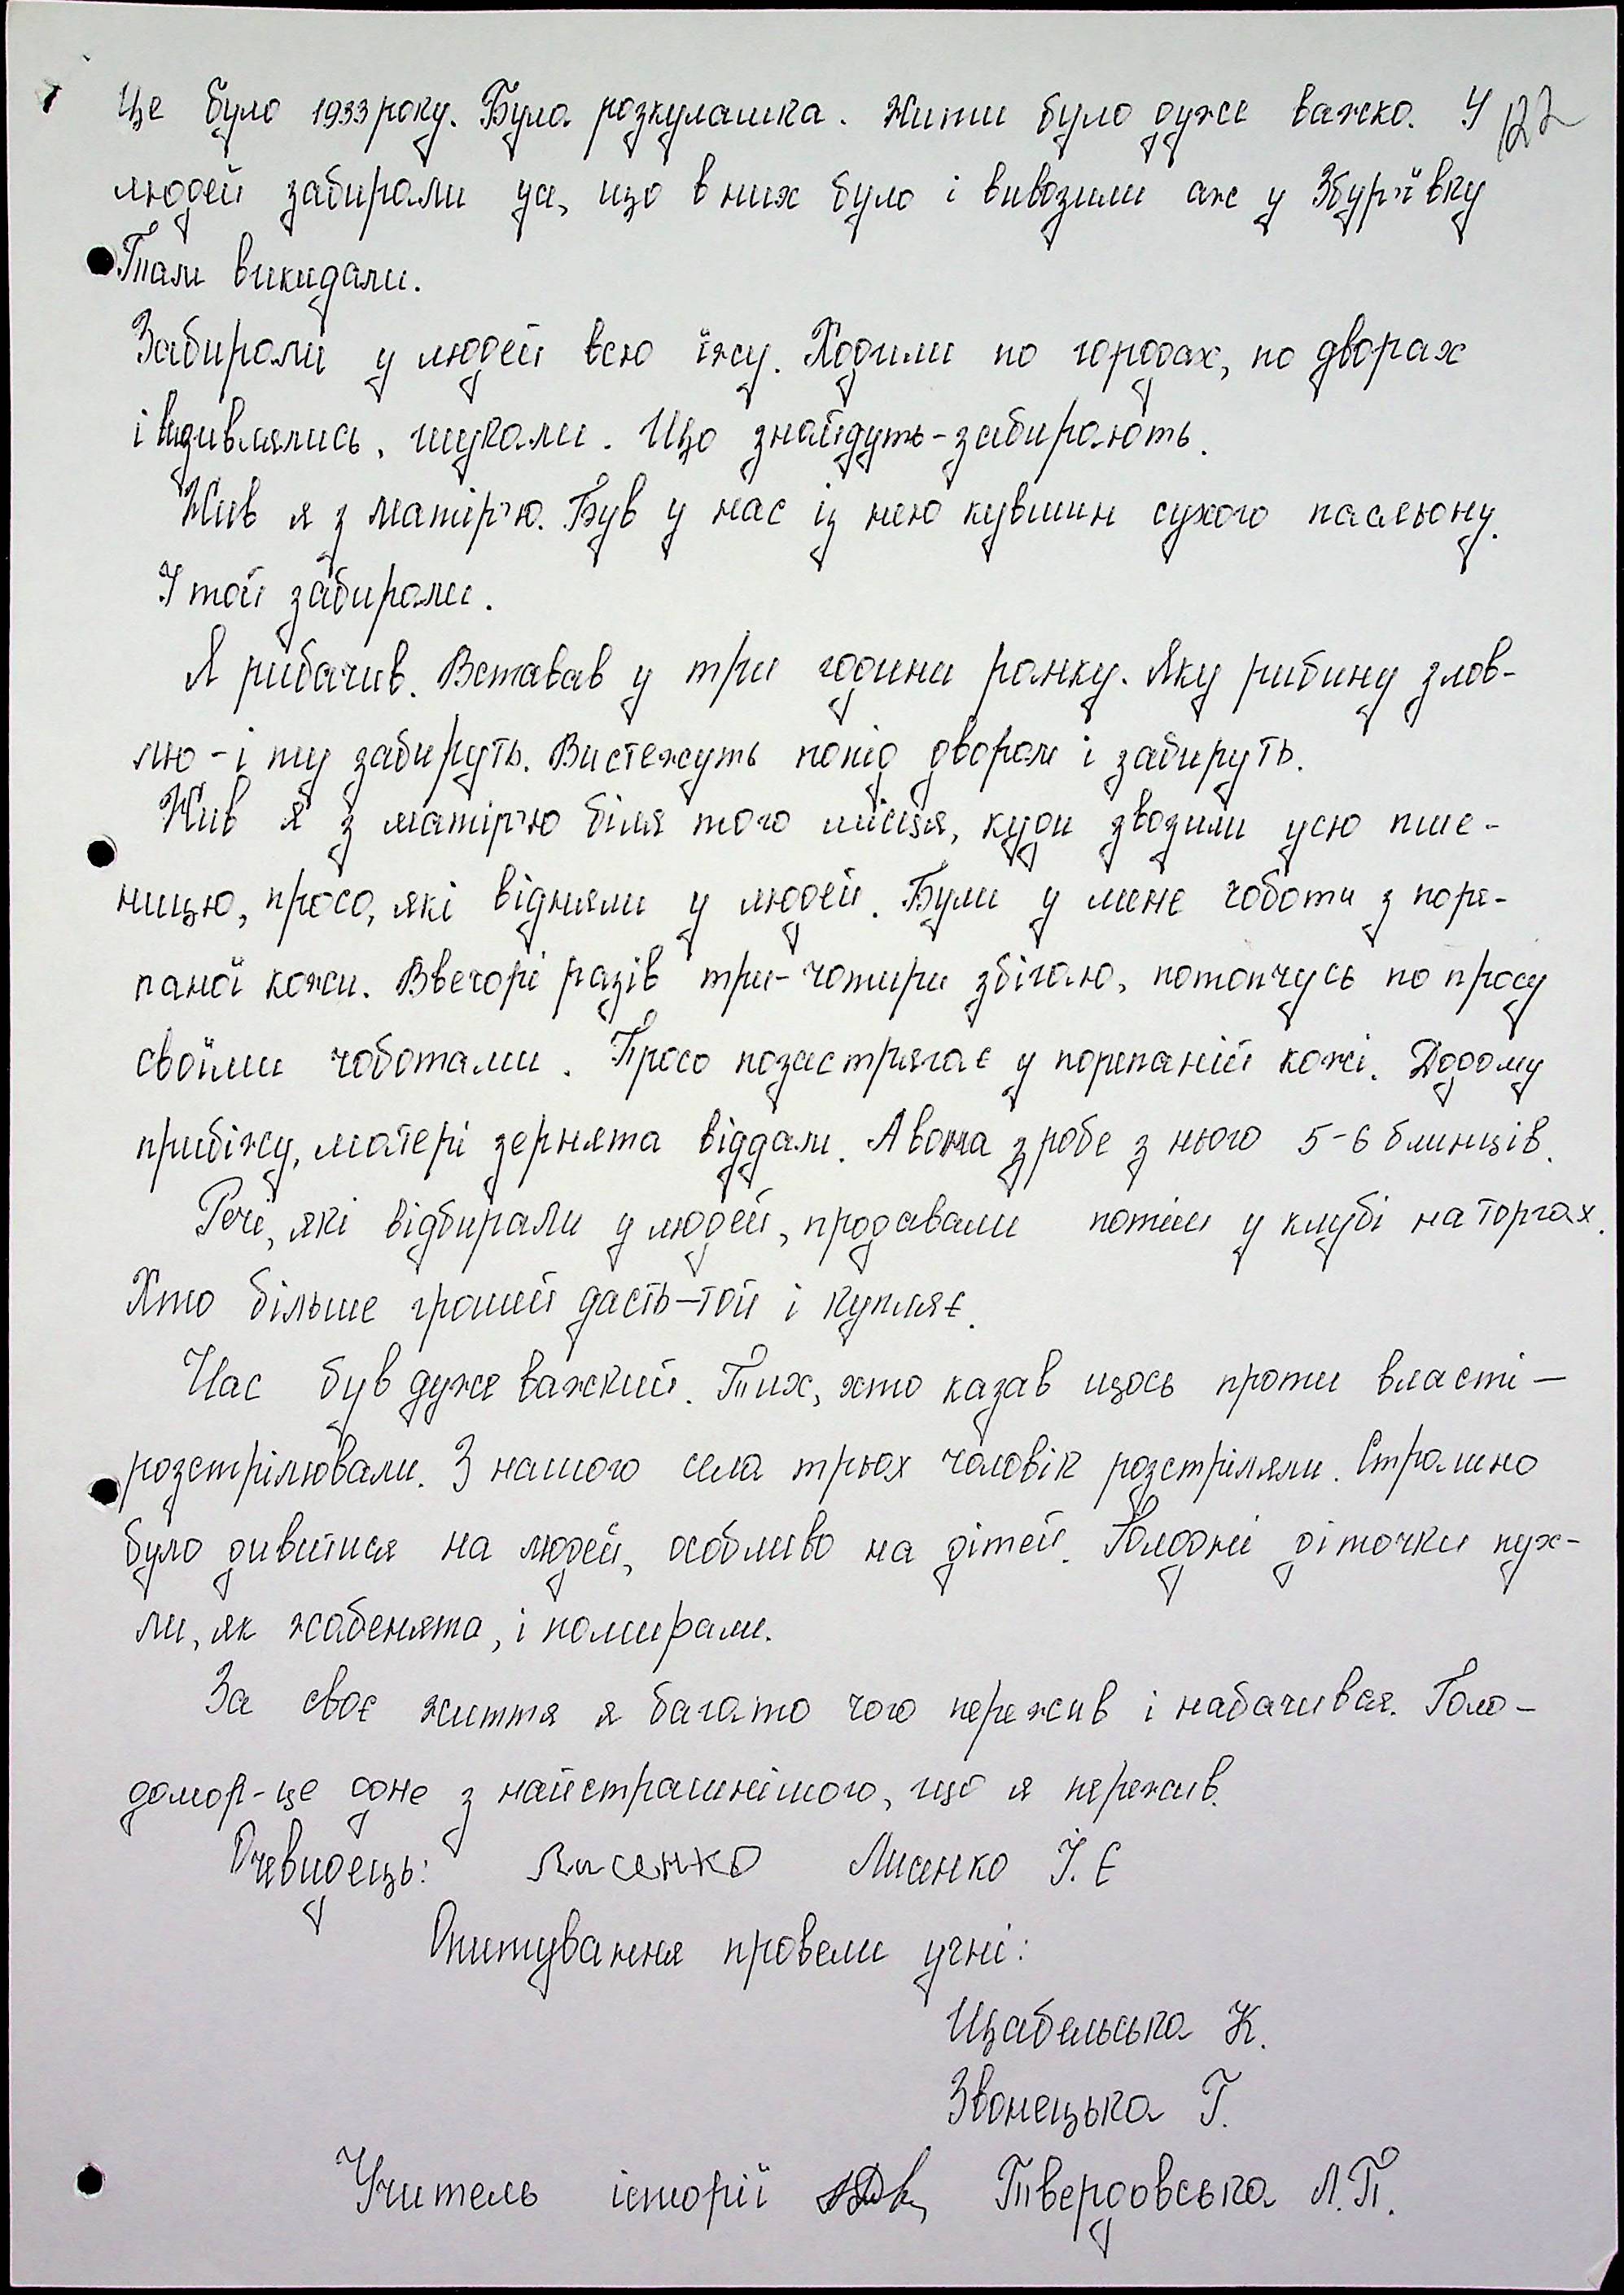 Це було 1933 року. Була розкулашка. Жити було дуже важко. У 122
людей забирали усе, що в них було і вивозили аж у Збур'ївку
Там викидали.
Забирали у людей всю їжу. Ходили по городах, по дворах
і видивлялись, шукали. Що знайдуть - забирають.
Жив я з матір'ю. Був у нас із нею кувшин сухого пасльону.
І той забирали.
Я рибачив. Вставав у три години ранку. Яку рибину злов-
лю - і ту забируть. Вистежуть попід двором і забируть.
Жив я з матір'ю біля того місця, куди звозили усю пше-
ницю, просо, які відняли у людей. Були у мене чоботи з поре-
паної кожи. Ввечорі разів три-чотири збігаю, потопчусь по просу
своїми чоботами. Просо позастрягає у порепаній кожі. Додому
прибіжу, матері зернята віддам. А вона зробе з нього 5-6 блинців.
Речі, які відбирали у людей, продавали потім у клубі на торгах.
Хто більше грошей дасть - той і купляє.
Час був дуже важкий. Тих, хто казав щось проти власті -
розстрілювали. З нашого села трьох чоловік розстріляли. Страшно
було дивитися на людей, особливо на дітей. Голодні діточки пух-
ли, як жабенята, і помирали.
За своє життя я багато чого пережив і набачився. Голо-
домор - це одне з найстрашнішого, що я пережив.
Очевидець: Лисенко Лисенко І. Є
Опитування провели учні:
Щабельська К.
Звонецька Г.
Учитель історії Твердовська Л. П.